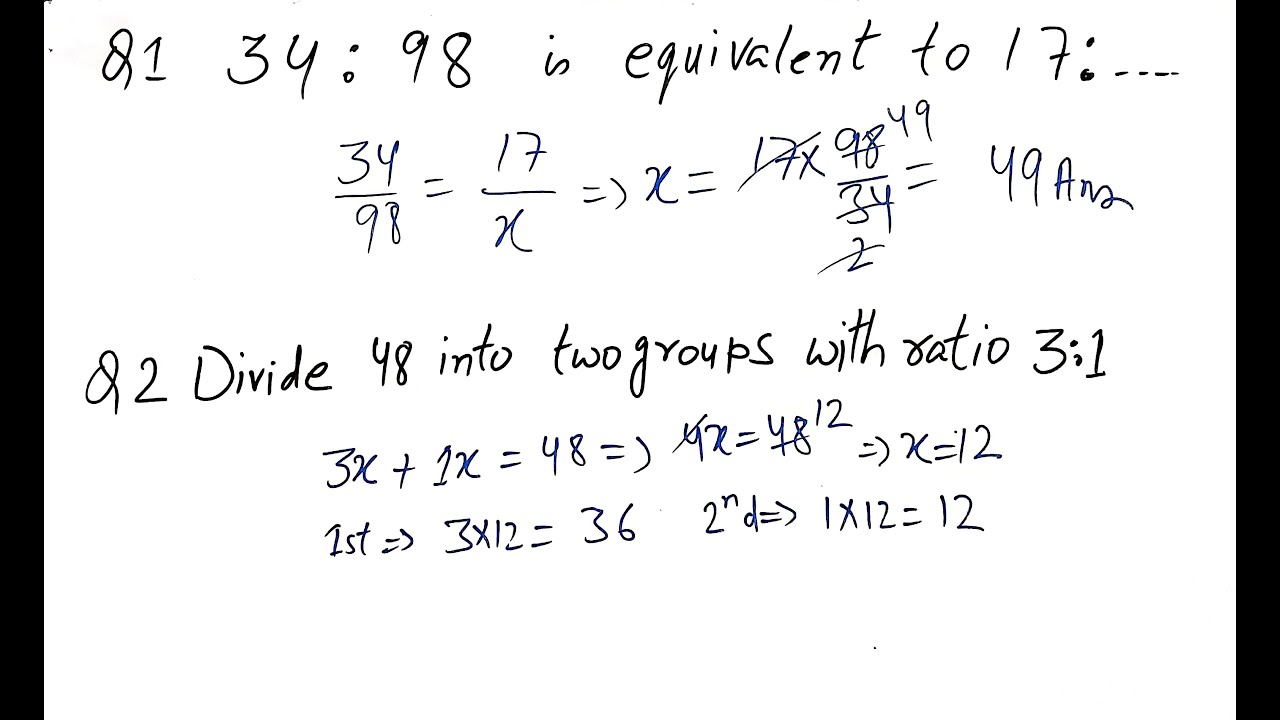 Q1 34 : 98 is equivalent to 17 : ....
34/98 = 17/x => x = 17 x 98/34 49 2 = 49 Ans
Q2 Divide 48 into two groups with ratio 3:1
3x + 1x = 48 => 4x = 48 12 => x = 12
1st => 3x12 = 36 2nd => 1x12 = 12